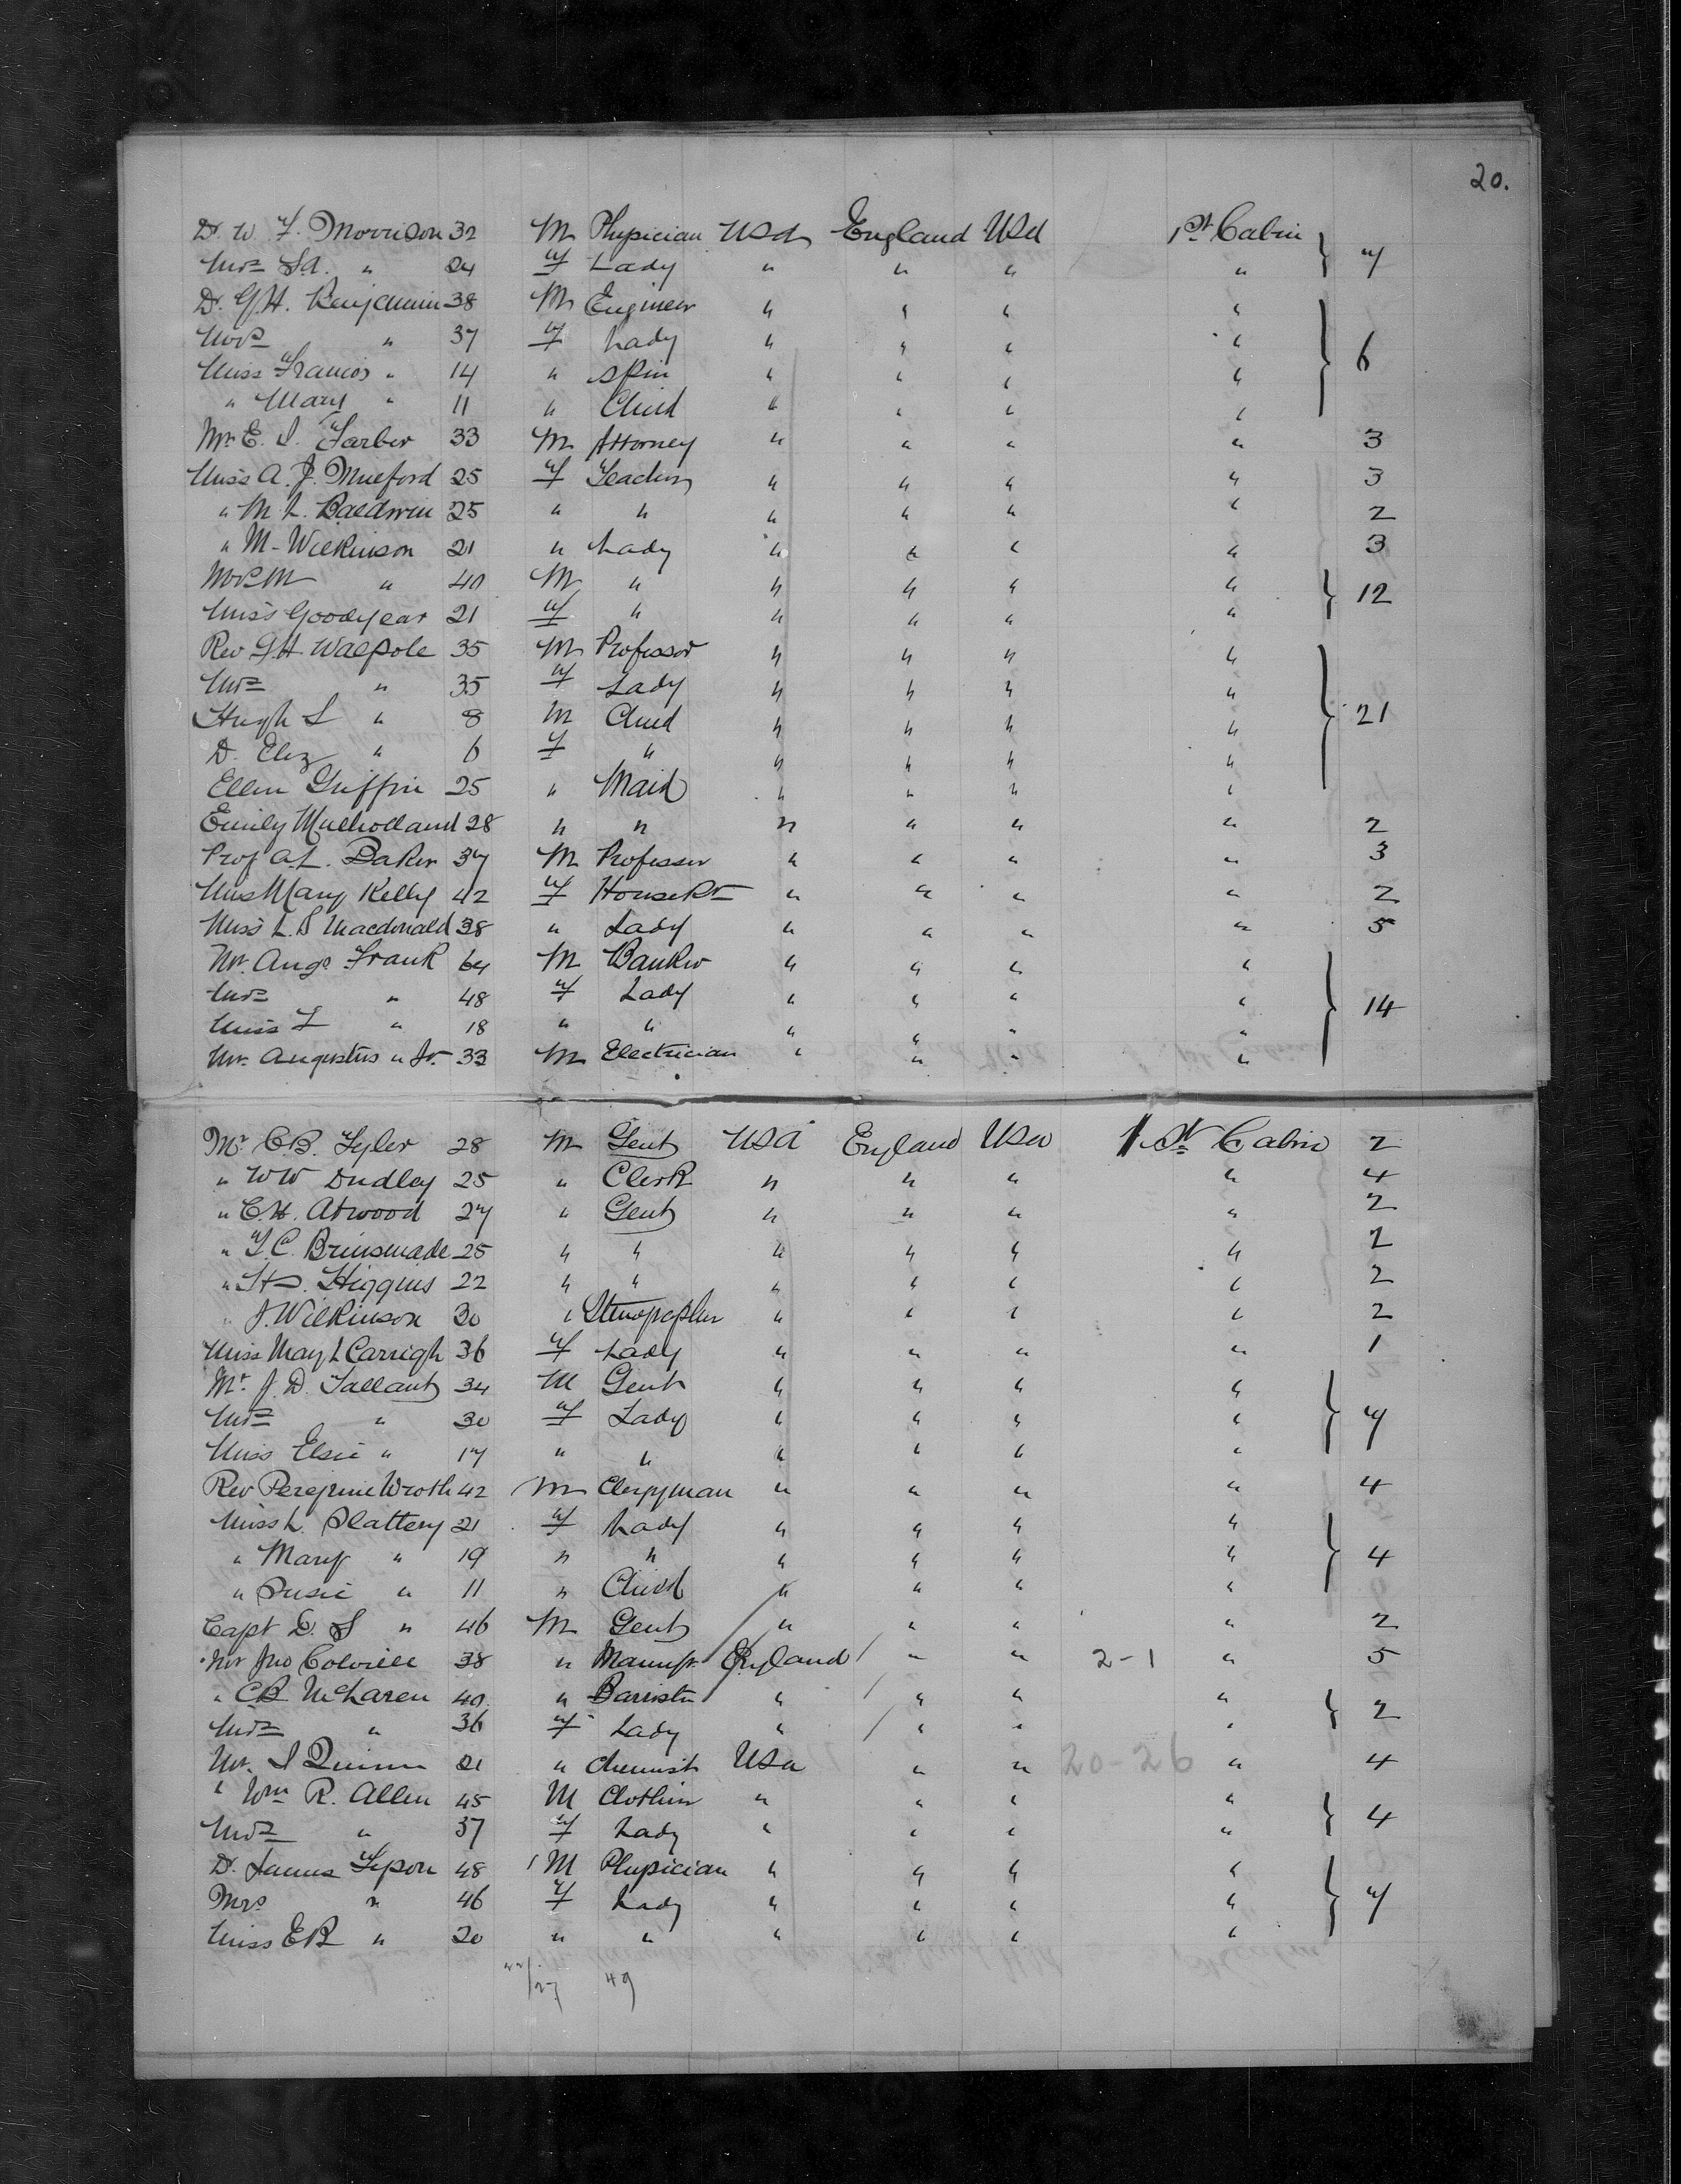 20.
Dr. W. F. Morrison 32 M Physician USA England USA 1st Cabin } 7
Mrs S.A. " 24 F Lady " " " "
Dr. G.H. Benjamin 38 M Engineer " " " " } 6
Mrs " 37 F Lady " " " "
Miss Francis " 14 " Spin " " " "
" Mary " 11 " Child " " " "
Mr E. I. Farber 33 M Attorney " " " " 3
Miss A. J. Mulford 25 F Teacher " " " " 3
" M L. Baldwin 25 " " " " " " 2
" M - Wilkinson 21 " Lady " " " " 3
Mrs M " 40 M " " " " " } 12
Miss Goodyear 21 F " " " " "
Rev G.H. Walpole 35 M Professor " " " " } 21
Mrs " 35 F Lady " " " "
Hugh S " 8 M Child " " " "
D. Eliz " 6 F " " " " "
Ellen Griffin 25 " Maid " " " "
Emily Mulholland 28 " " " " " " 2
Prof A.L. Baker 37 M Professor " " " " 3
Miss Mary Kelly 42 F Housekr " " " " 2
Miss L. S Macdonald 38 " Lady " " " " 5
Mr. Augs Frank 64 M Banker " " " " } 14
Mrs " 48 F Lady " " " "
Miss F " 18 " " " " " "
Mr. Augustus " Jr. 33 M Electrician " " " "
Mr C.B. Tyler 28 M Gent USA England USA 1st Cabin 2
" WW Dudley 25 " Clerk " " " " 4
" C.H. Atwood 27 " Gent " " " " 2
" T.C. Brinsmade 25 " " " " " " 2
" Higgins 22 " " " " " " 2
" J. Wilkinson 30 " " " " " 2
Miss May L Carrigh 36 F Lady " " " " 1
Mr. J. D. Tallant 34 M Gent " " " " } 7
Mrs " 30 F Lady " " " "
Miss Elsie " 17 " " " " " "
Rev Peregrine Wroth 42 M Clergyman " " " " 4
Miss L. Slattery 21 F Lady " " " " } 4
" Mary " 19 " " " " " "
" Susie " 11 " Child " " " "
Capt D. S " 46 M Gent " " " " 2
Mr Jno Colville 38 " Manufr. England " " 2-1 " 5
" CB McLaren 40 " Barrister " " " " } 2
Mrs " 36 F Lady " " " "
Mr. I Quinn 21 " Chemist USA " " 20-26 " 4
" Wm R. Allen 45 M Clothier " " " " } 4
Mrs " 37 F Lady " " " "
Dr. James Tyson 48 M Physician " " " " } 7
Mrs " 46 F Lady " " " "
Miss EB " 20 " " " " " "
22/27 49